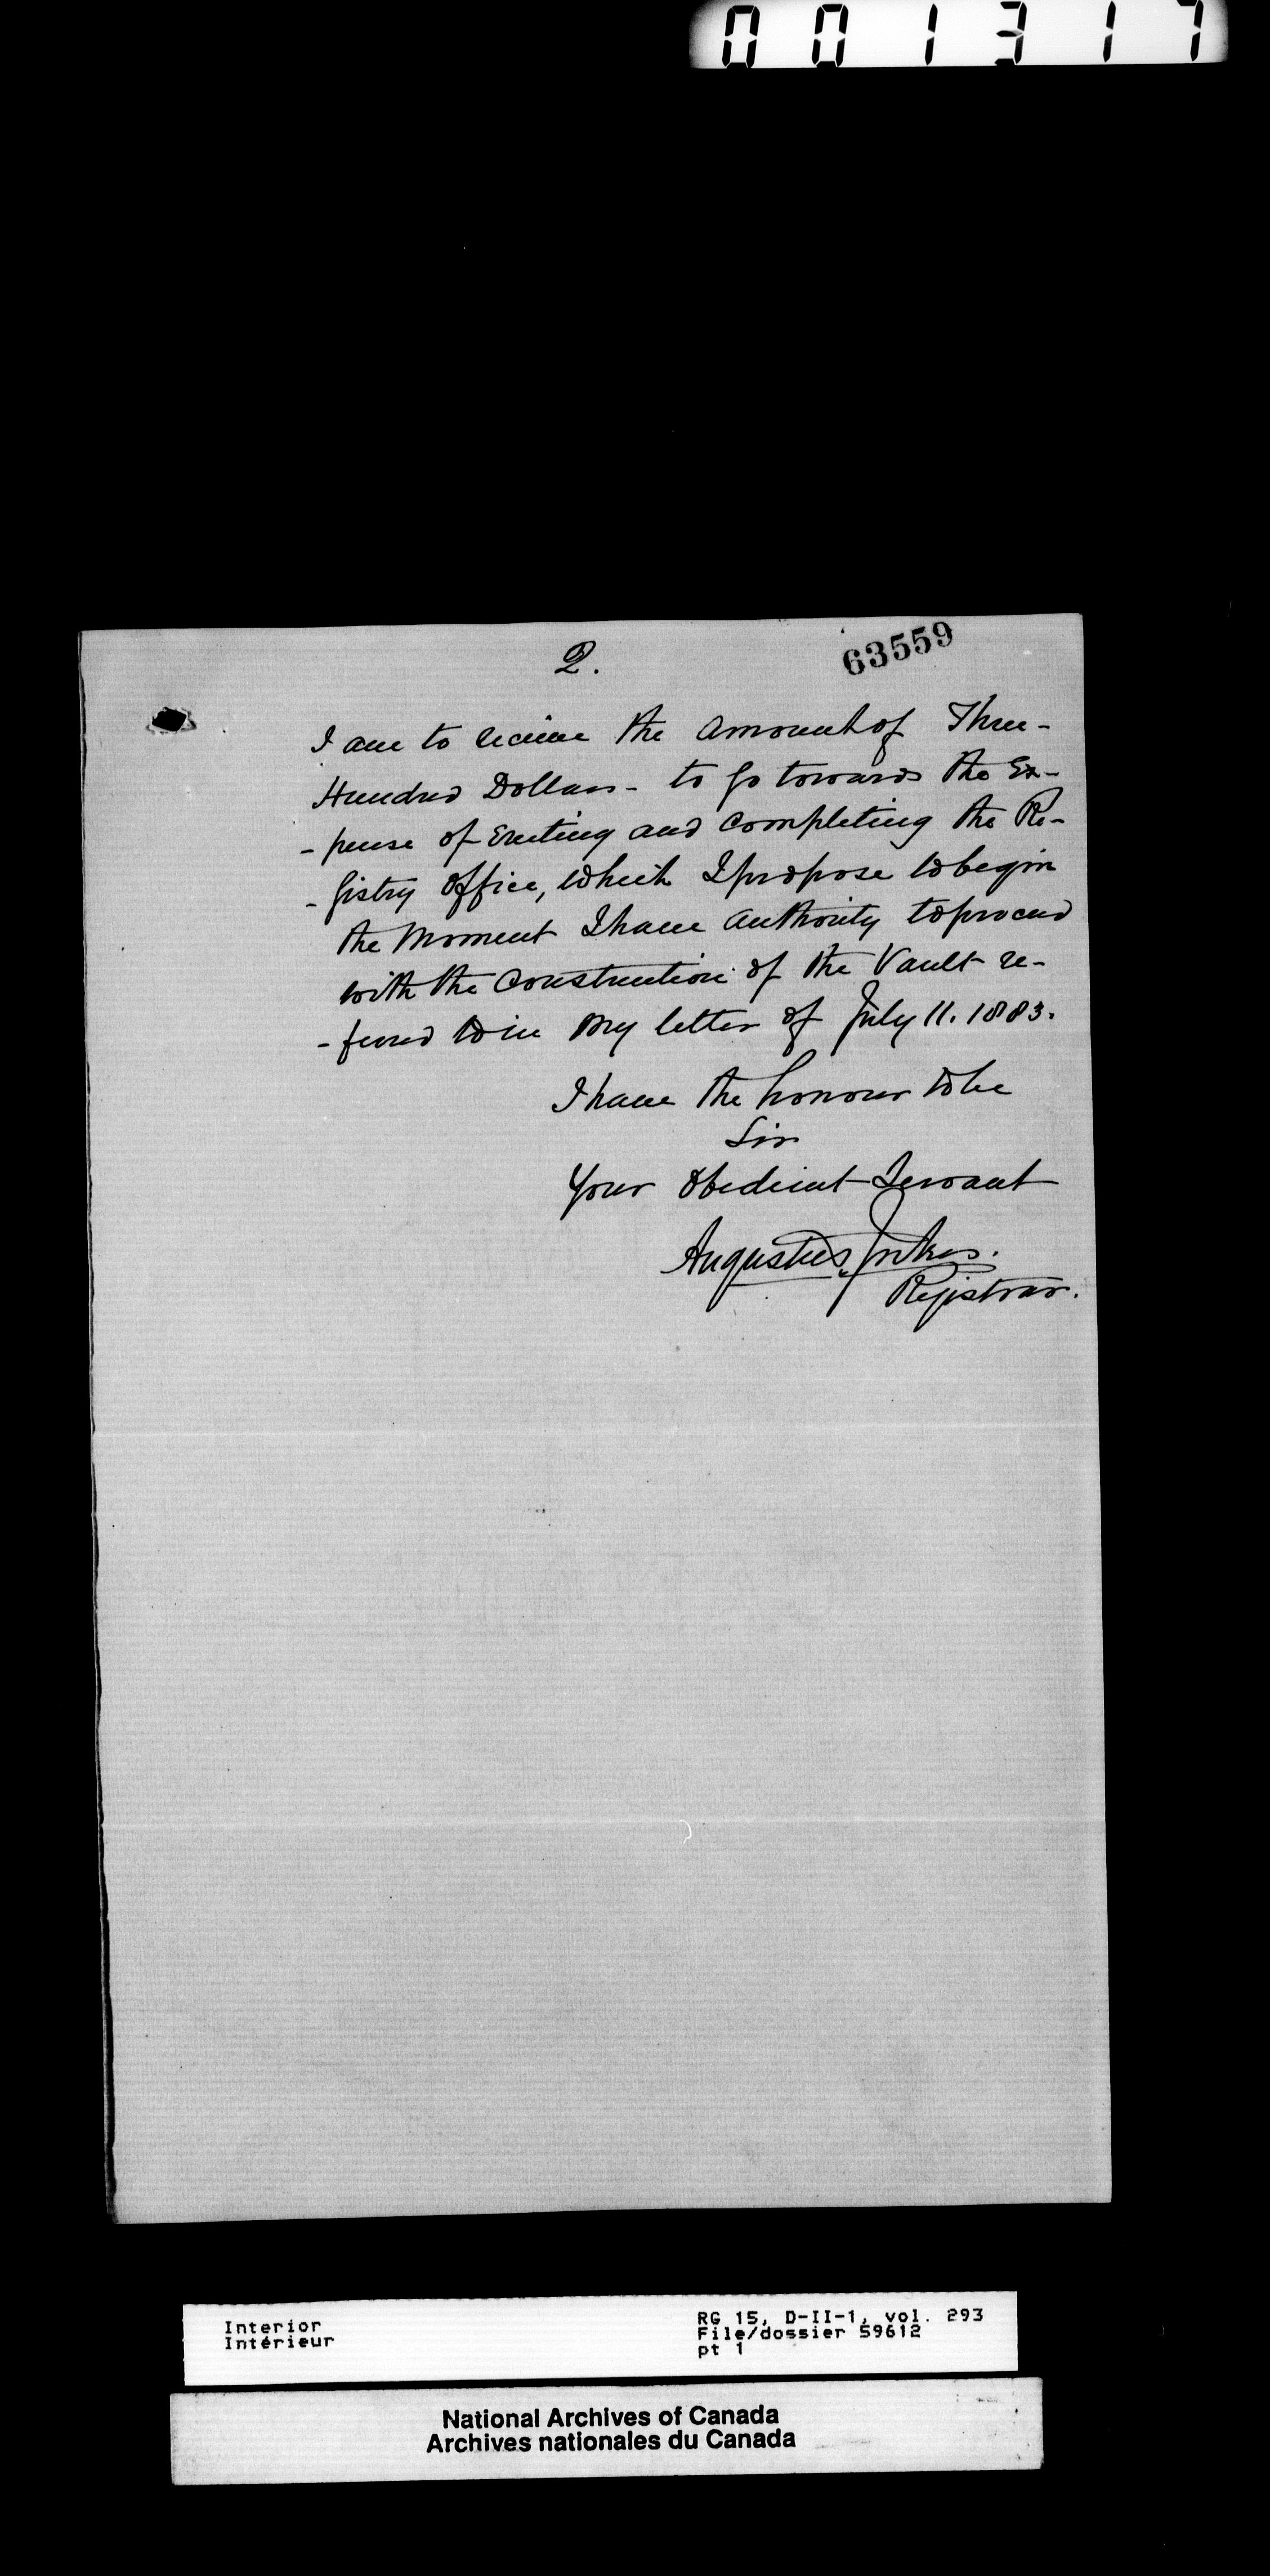 001317
2.
63559
I am to receive the amount of Three-
Hundred Dollars - to go towards the Ex-
- pense of Erecting and Completing the Re-
- gistry Office, which I propose to begin
the Moment I have authority to proceed
with the Construction of the Vault re-
- ferred to in my letter of July 11. 1883.
I have the honour to be
Sir
Your Obedient Servant
Augustus Jukes.
Registrar.
Interior
Intérieur
RG 15, D-II-1, vol. 293
File/dossier 59612
pt 1
National Archives of Canada
Archives nationales du Canada